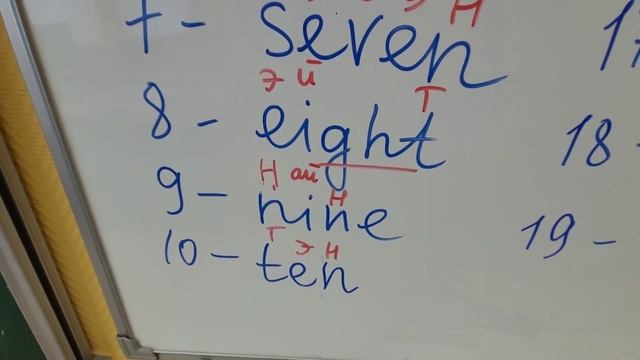 7 - seven
Н
э й Т
8 - eight
18 -
Н ай Н
9 - nine
19 -
Т э Н
10 - ten